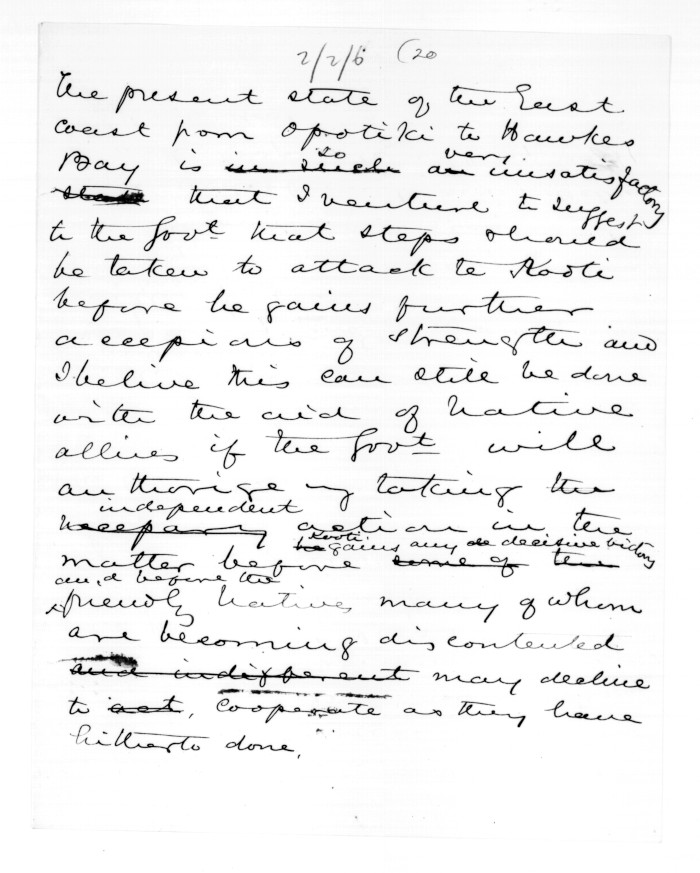 2/2/6 (20
The present state of the East
coast from Opotiki to Hawkes
Bay is in such so an very insatisfactory
state that I venture to suggest
to the Govt that steps should
be taken to attack te Kooti
before he gains further
accessions of strength and
I belive this can still be done
with the aid of Native
allies if the Govt will
authorize my taking the
independent
necessary action in the
he Kooti gains any de decisive victory
matter before some of the
and before the
friendly Natives many of whom
are becoming discontented
and indifferent may decline
to act, cooperate as they have
hitherto done.